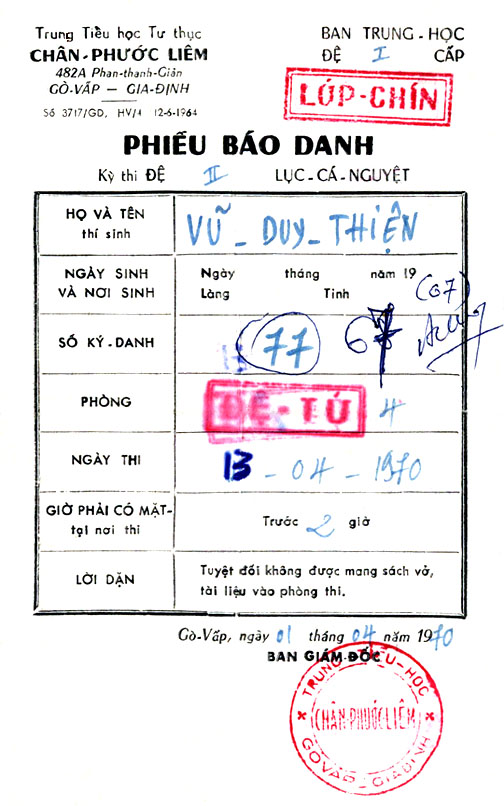 Trung Tiểu học Tư thục
CHÂN-PHƯỚC LIÊM
482A Phan-thanh-Giản
GÒ-VẤP — GIA-ĐỊNH
Số 3717/GD, HV/4 12-6-1964
BAN TRUNG-HỌC
ĐỆ I CẤP
LỚP-CHÍN
PHIẾU BÁO DANH
Kỳ thi ĐỆ II LỤC-CÁ-NGUYỆT
HỌ VÀ TÊN
thí sinh
VŨ_DUY_THIỆN
NGÀY SINH
VÀ NƠI SINH
Ngày tháng năm 19
Làng Tỉnh
(67)
SỐ KÝ-DANH
77 67
PHÒNG
ĐỆ-TỨ 4
NGÀY THI
13-04-1970
GIỜ PHẢI CÓ MẶT-
tại nơi thi
Trước 2 giờ
LỜI DẶN
Tuyệt đối không được mang sách vở,
tài liệu vào phòng thi.
Gò-Vấp, ngày 01 tháng 04 năm 1970
BAN GIÁM-ĐỐC
TRUNG TIỂU-HỌC
CHÂN-PHƯỚC LIÊM
GÒ VẤP - GIA ĐỊNH